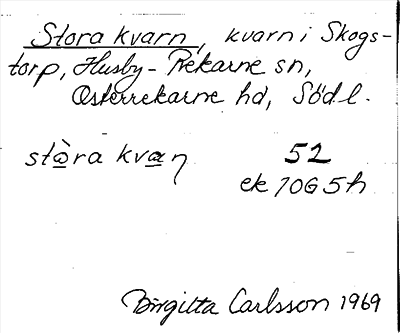 Stora kvarn, kvarn i Skogs-
torp, Husby-Rekarne sn,
Österrekarne hd, Södl.
stòra kvaɳ 52
ek 10G5h
Birgitta Carlsson 1969